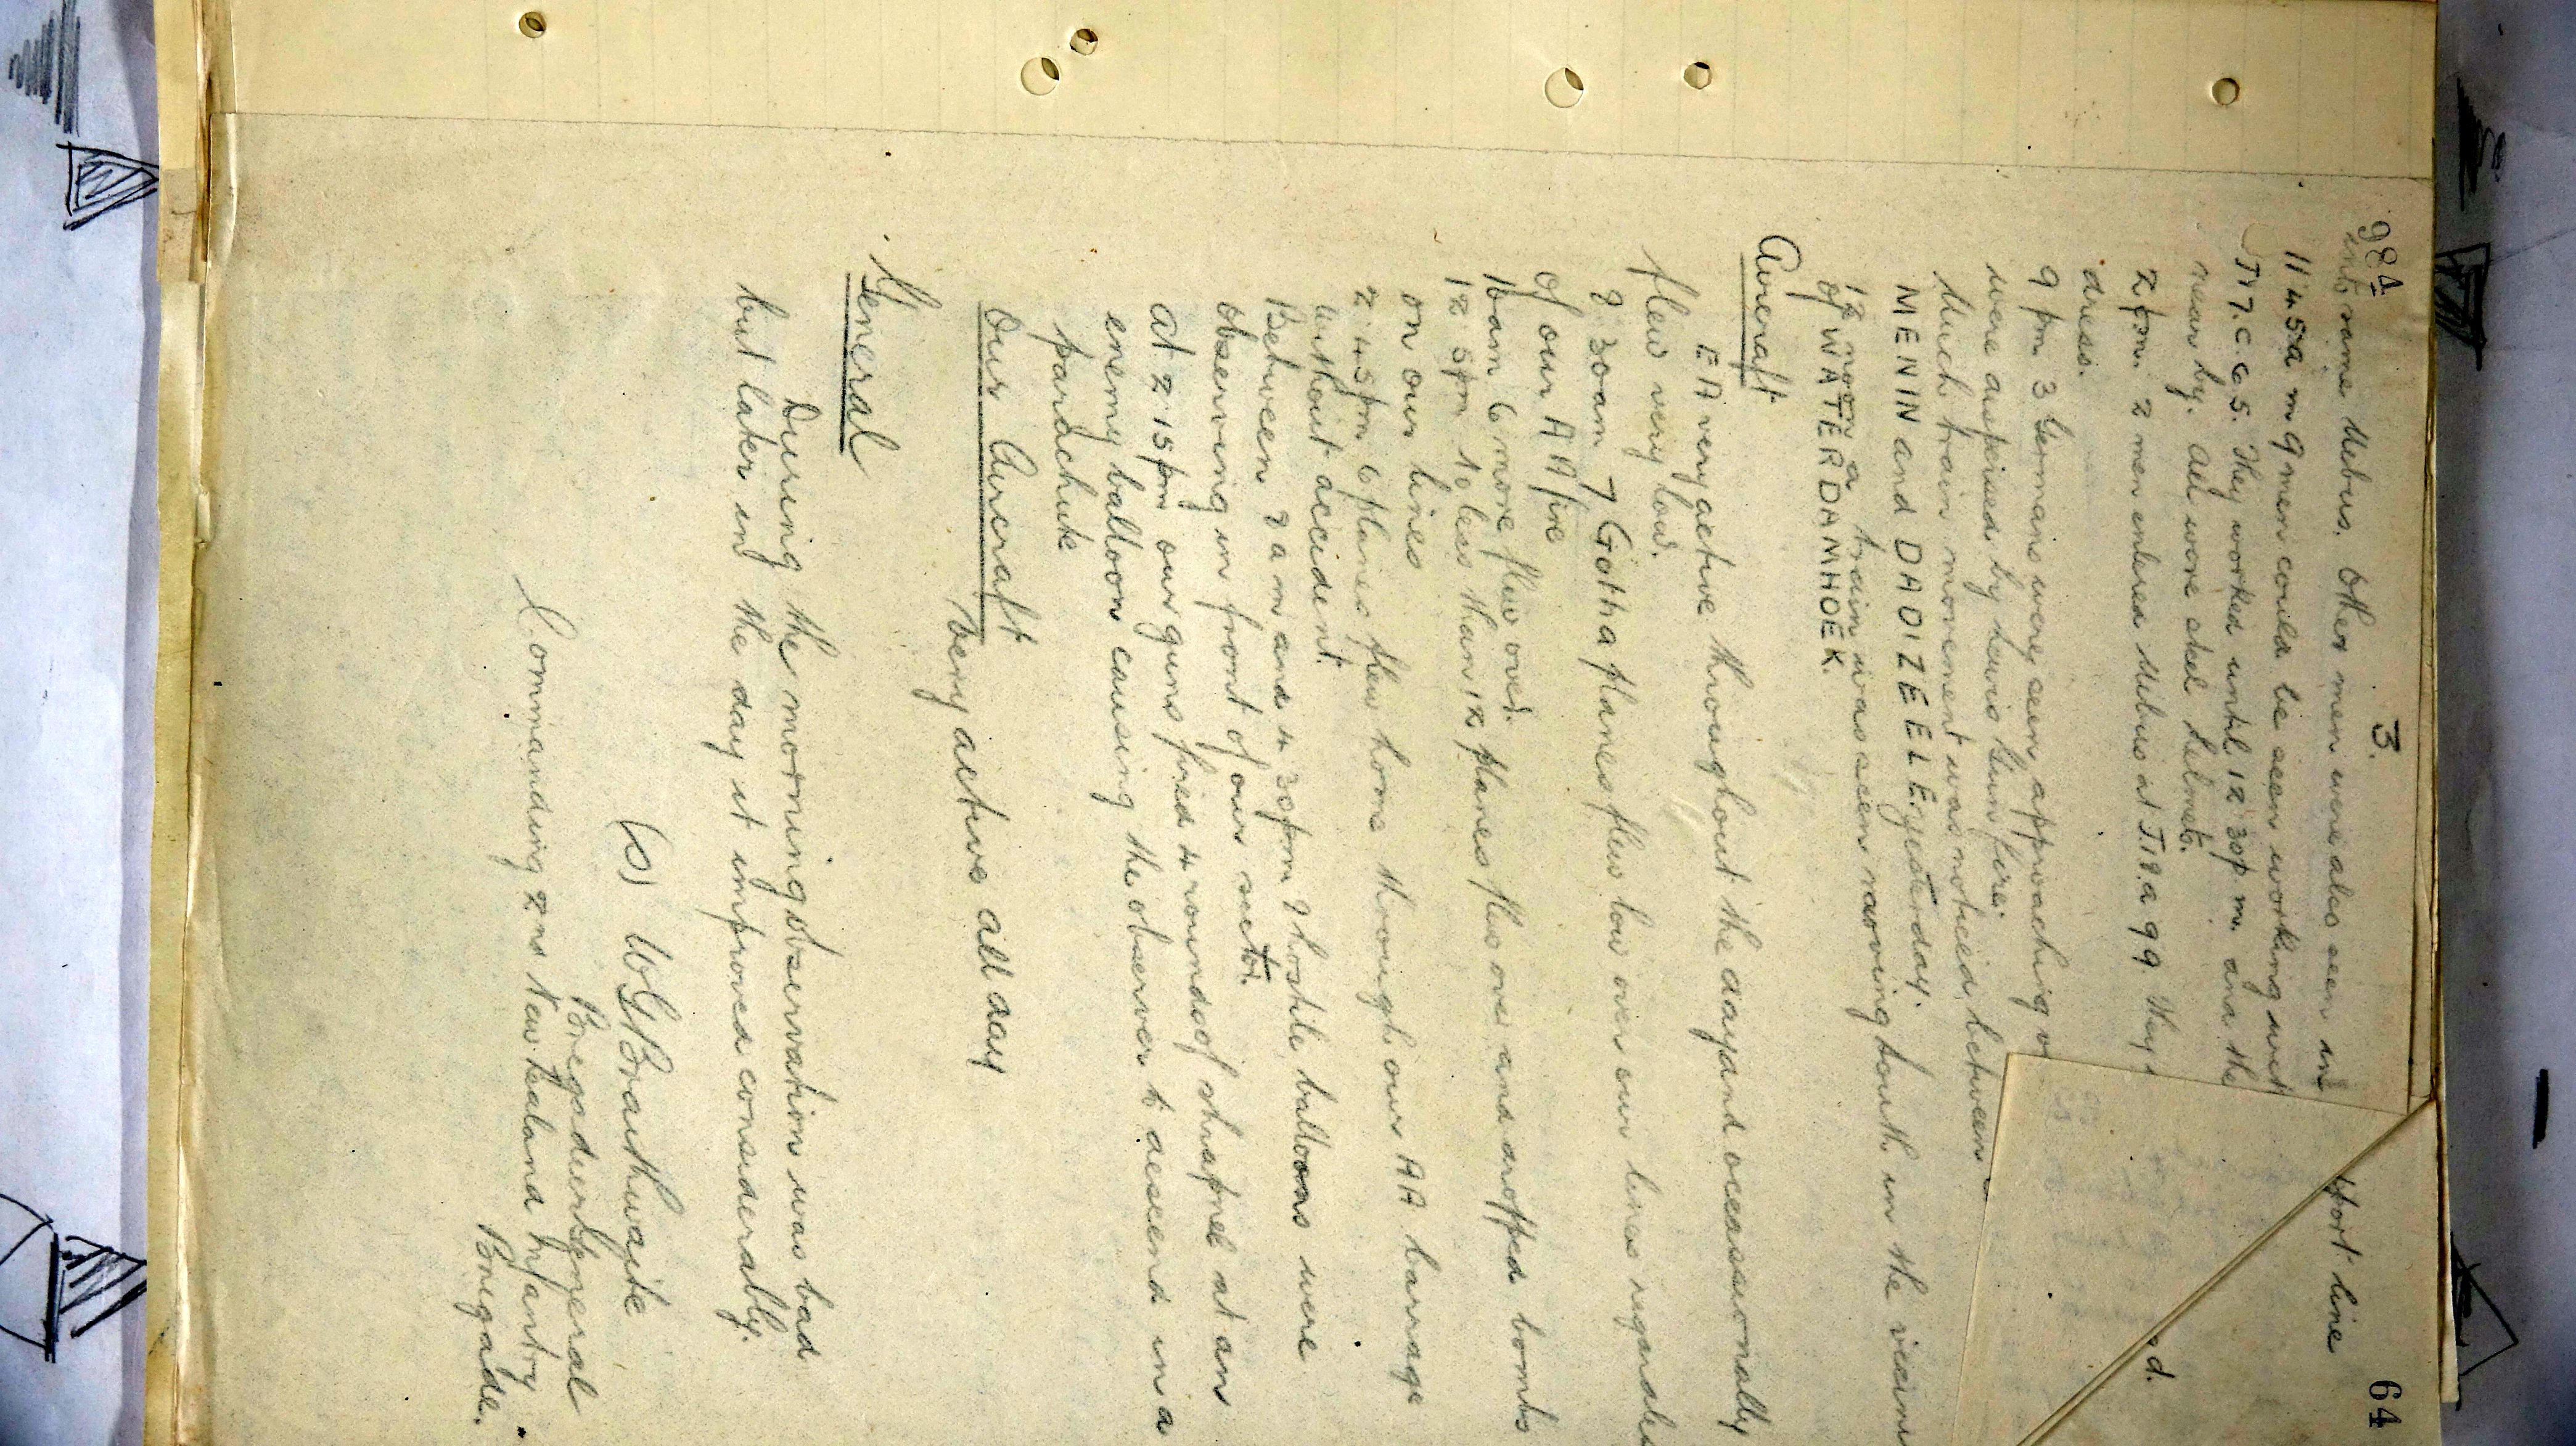 984
3.
64
into same Mebus. Other men were also seen in
port line
11 45 a m 9 men could be seen working
J 17. c. 6 5. They worked until 12 30 p. m. and the
near by. All wore steel helmets.
2 pm. 2 men entered Mebus at J 18. a 99. They
d.
dress.
9 pm 3 Germans were seen approaching
were dispersed by Lewis Gun fire.
Much train movement was noticed between
MENIN and DADIZEELE yesterday.
12 noon a train was seen moving South in the
of WATERDAMHOEK.
Aircraft
EA very active throughout the day and occassionally
flew very low.
8 30 am 7 Gotha planes flew low over our lines
of our A A fire
10 am 6 more flew over.
12 5 pm No less than 12 planes flew over and dropped bombs
on our lines
2 45 pm 6 planes flew home through our AA barrage
without accident.
Between 8 a m and 4 30 pm 8 hostile balloons were
observing in front of our sector.
At 2 15 pm our guns fired 4 rounds of shrapnel at an
enemy balloon causing the observer to descend in a
parachute
Our Aircraft
Very active all day
General
During the morning observation was bad
but later in the day it improved considerably.
(s) W G Braithwaite
Brigadier General
Commanding 2nd New Zealand Infantry
Brigade.